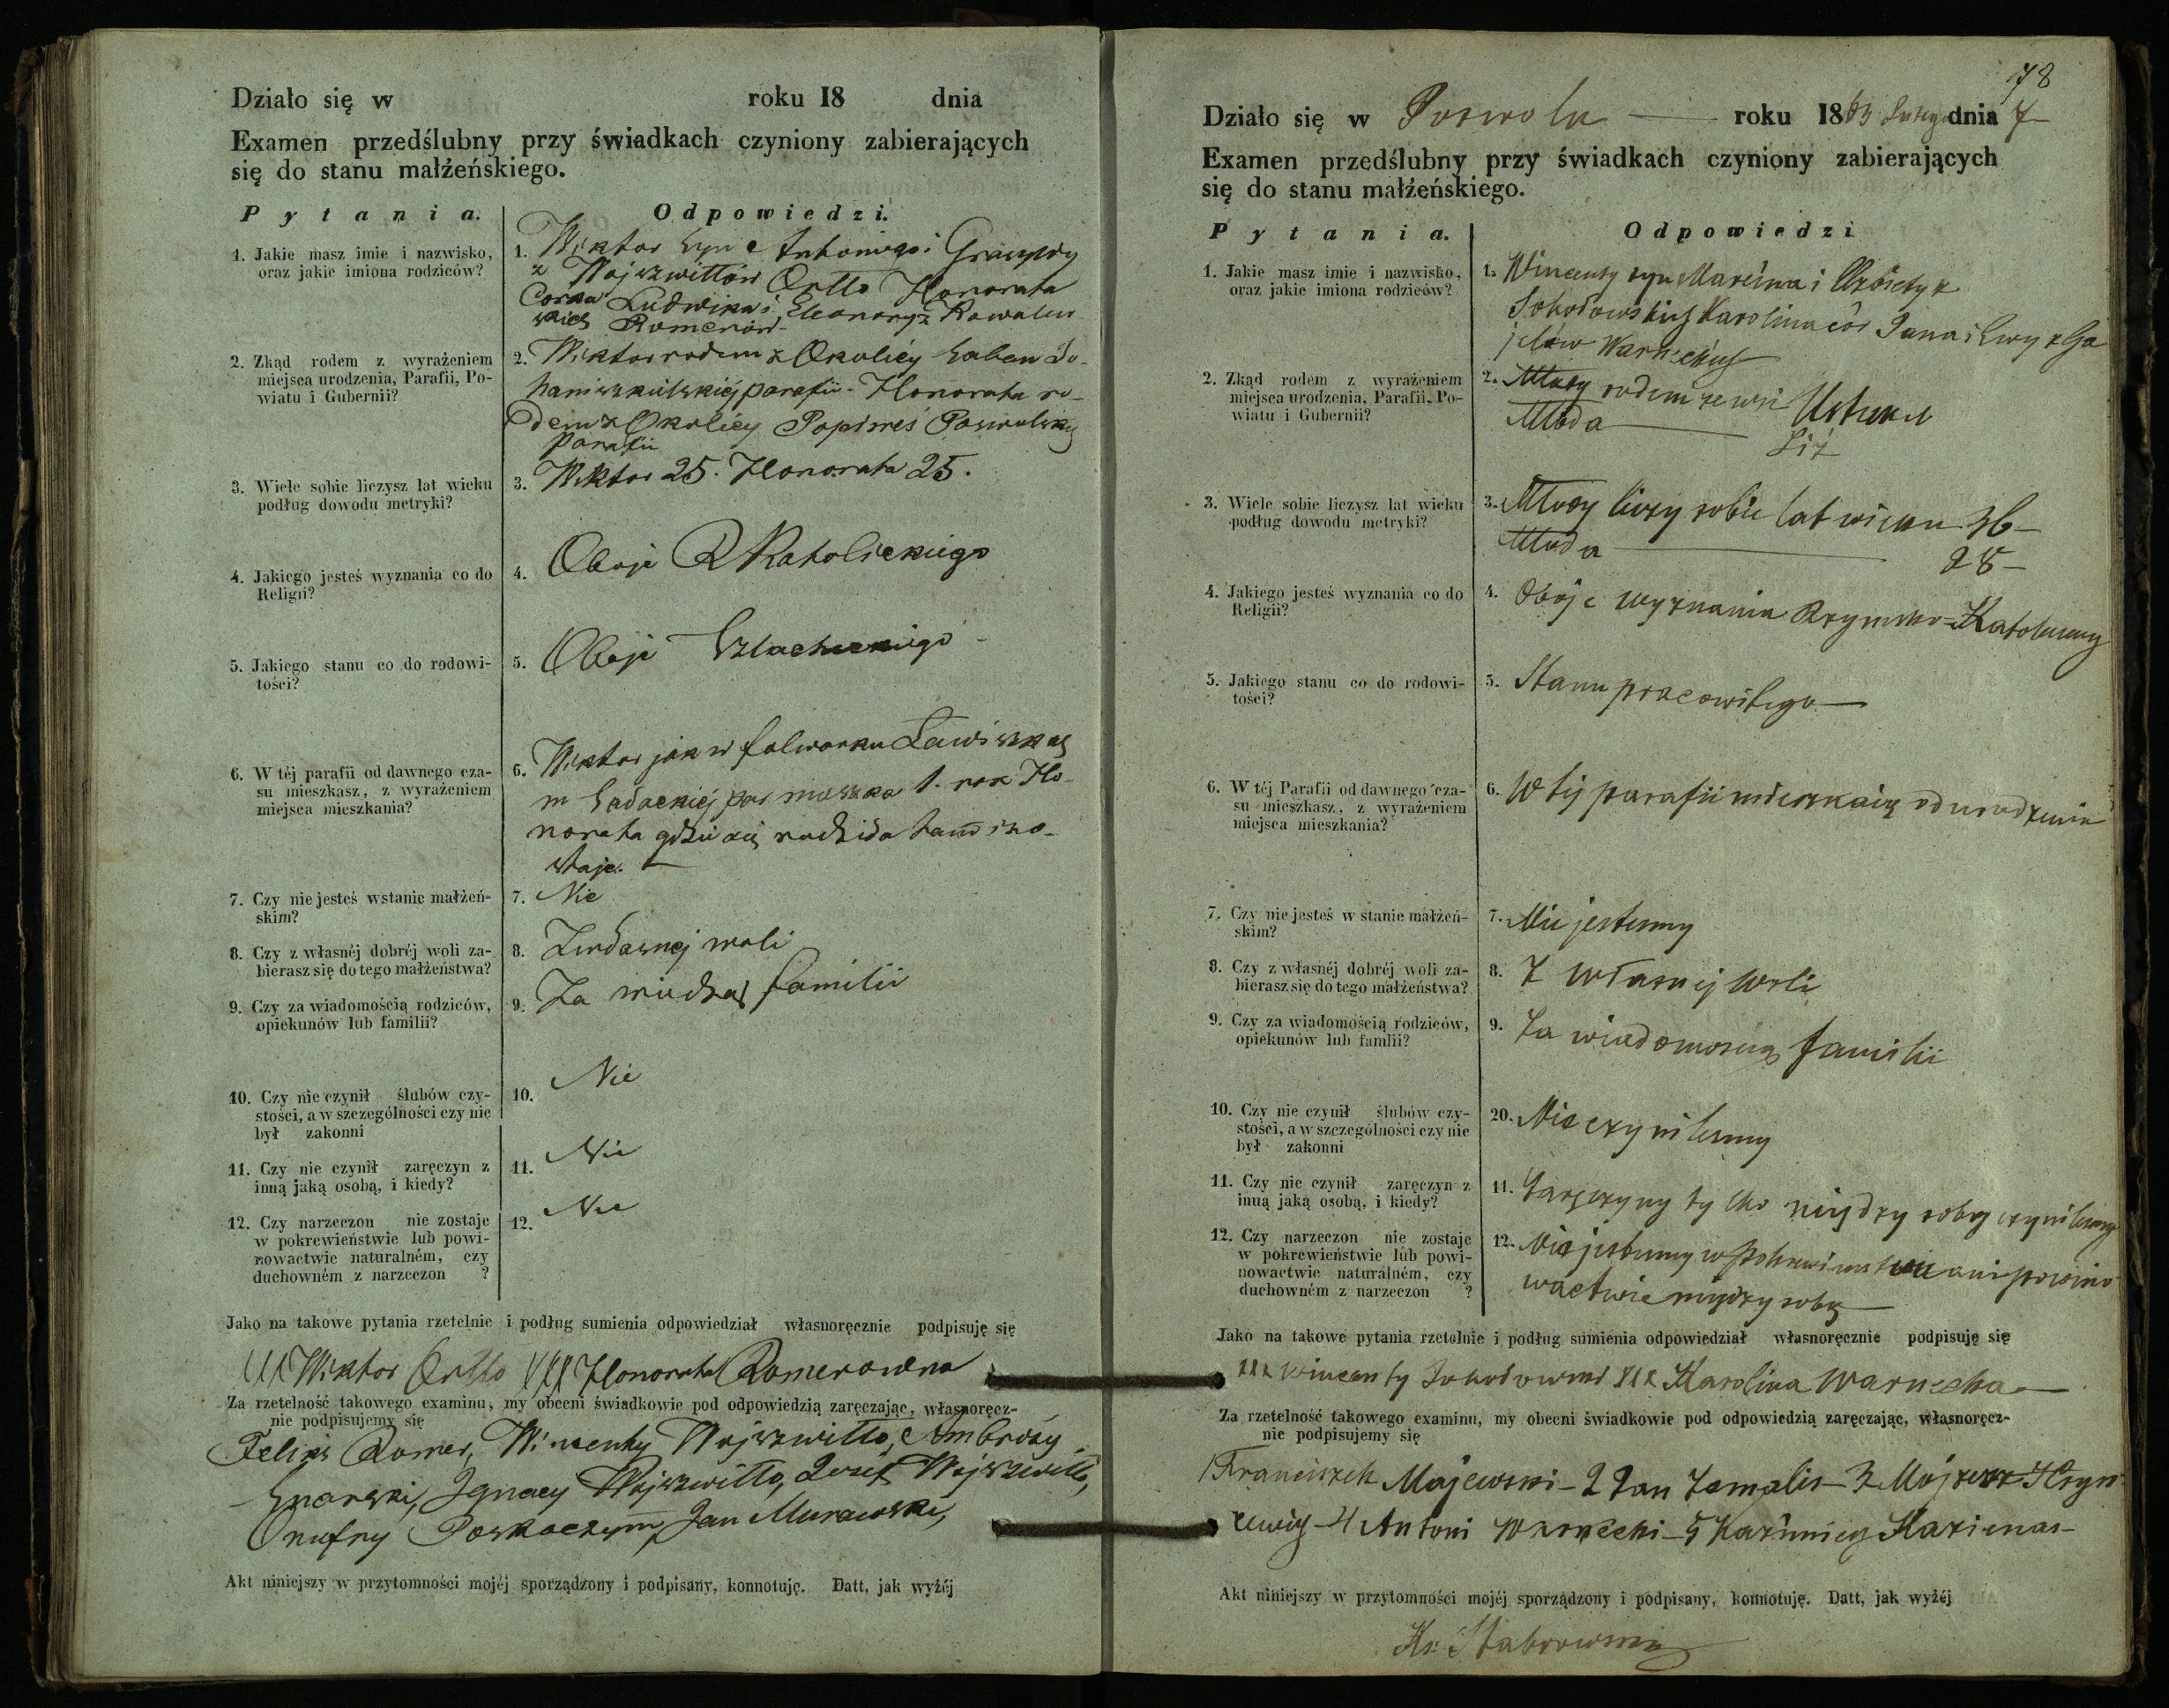 Działo się w roku 18 dnia
Examen przedślubny przy świadkach czyniony zabierających
się do stanu małżeńskiego.
Pytania. Odpowiedzi.
1. Jakie masz imie i nazwisko,
oraz jakie imiona rodziców?
1. Wiktor Syn Antoniego i
z Wojszwiłłów Orłło Honorata
Corka Ludwika i Eleonory z Kowalew
skich Romerów
2. Zkąd rodem z wyrażeniem
miejsca urodzenia, Parafii, Po-
wiatu i Gubernii?
2. Wiktor rodem z Okolicy
parafii - Honorata ro-
dem z Okolicy Poswolskiej
parafii
3. Wiele sobie liczysz lat wieku
podług dowodu metryki?
3. Wiktor 25. Honorata 25.
4. Jakiego jesteś wyznania co do
Religii?
4. Oboje R Katolickiego
5. Jakiego stanu co do rodowi-
tości?
5. Oboje Szlacheckiego
6. W téj parafii od dawnego cza-
su mieszkasz, z wyrażeniem
miejsca mieszkania?
6. Wiktor jak w folwarku
par mieszka 1. rok Ho-
norata gdzie się rodziła tam zo-
staje.
7. Czy nie jesteś w stanie małżeń-
skim?
7. Nie
8. Czy z własnéj dobréj woli za-
bierasz się do tego małżeństwa?
8. Z własnej woli
9. Czy za wiadomością rodziców,
opiekunów lub familii?
9. Za wiedzą familii
10. Czy nie czynił ślubów czy-
stości, a w szczególności czy nie
był zakonni
10. Nie
11. Czy nie czynił zaręczyn z
inną jaką osobą, i kiedy?
11. Nie
12. Czy narzeczon nie zostaje
w pokrewieństwie lub powi-
nowactwie naturalném, czy
duchowném z narzeczon ?
12. Nie
Jako na takowe pytania rzetelnie i podług sumienia odpowiedział własnoręcznie podpisuję się
XXX Wiktor Orłło XXX Honorata Romerowna
Za rzetelność takowego examinu, my obecni świadkowie pod odpowiedzią zaręczając, własnoręcz-
nie podpisujemy się
Felix Romer, Wincenty Wojszwiłło, Ambroży
Ignacy Wojszwiłło, Józef Wojszwiłło,
Onufry Poskoczym, Jan Murawski,
Akt niniejszy w przytomności mojéj sporządzony i podpisany, konnotuję. Datt, jak wyżéj
78
Działo się w Poswolu roku 1863 Lutego dnia 7
Examen przedślubny przy świadkach czyniony zabierających
się do stanu małżeńskiego.
Pytania. Odpowiedzi
1. Jakie masz imie i nazwisko,
oraz jakie imiona rodziców?
1. Wincenty syn Marcina i Elżbiety z
Karolina cór Jana i Ewy z Ga
jelów
2. Zkąd rodem z wyrażeniem
miejsca urodzenia, Parafii, Po-
wiatu i Gubernii?
2. Młody rodem ze wsi
Młoda
3. Wiele sobie liczysz lat wieku
podług dowodu metryki?
3. Młody liczy sobie lat wieku 36
Młoda 28
4. Jakiego jesteś wyznania co do
Religii?
4. Oboje wyznania Rzymsko-Katolickiej
5. Jakiego stanu co do rodowi-
tości?
5. Stanu pracowitego
6. W téj Parafii od dawnego cza-
su mieszkasz, z wyrażeniem
miejsca mieszkania?
6. W tej parafii mieszkają od urodzenia
7. Czy nie jesteś w stanie małżeń-
skim?
7. Nie jestesmy
8. Czy z własnéj dobréj woli za-
bierasz się do tego małżeństwa?
8. Z własnej woli
9. Czy za wiadomością rodziców,
opiekunów lub famlii?
9. Za wiadomoscią familii
10. Czy nie czynił ślubów czy-
stości, a w szczególności czy nie
był zakonni
20. Nie czynilismy
11. Czy nie czynił zaręczyn z
inną jaką osobą, i kiedy?
11. Zaręczyny tylko między sobą czynilismy
12. Czy narzeczon nie zostaje
w pokrewieństwie lub powi-
nowactwie naturalném, czy
duchowném z narzeczon ?
12. Nie jestesmy w pokrewienstwie ani powino
wactwie między sobą
Jako na takowe pytania rzetelnie i podług sumienia odpowiedział własnoręcznie podpisuję się
XXX Wincenty XXX Karolina Warnecka
Za rzetelność takowego examinu, my obecni świadkowie pod odpowiedzią zaręczając, własnoręcz-
nie podpisujemy się
1 Franciszek Majewski - 2 Jan - 3
4 Antoni - 5 Kazimierz
Akt niniejszy w przytomności mojéj sporządzony i podpisany, konnotuję. Datt, jak wyżéj